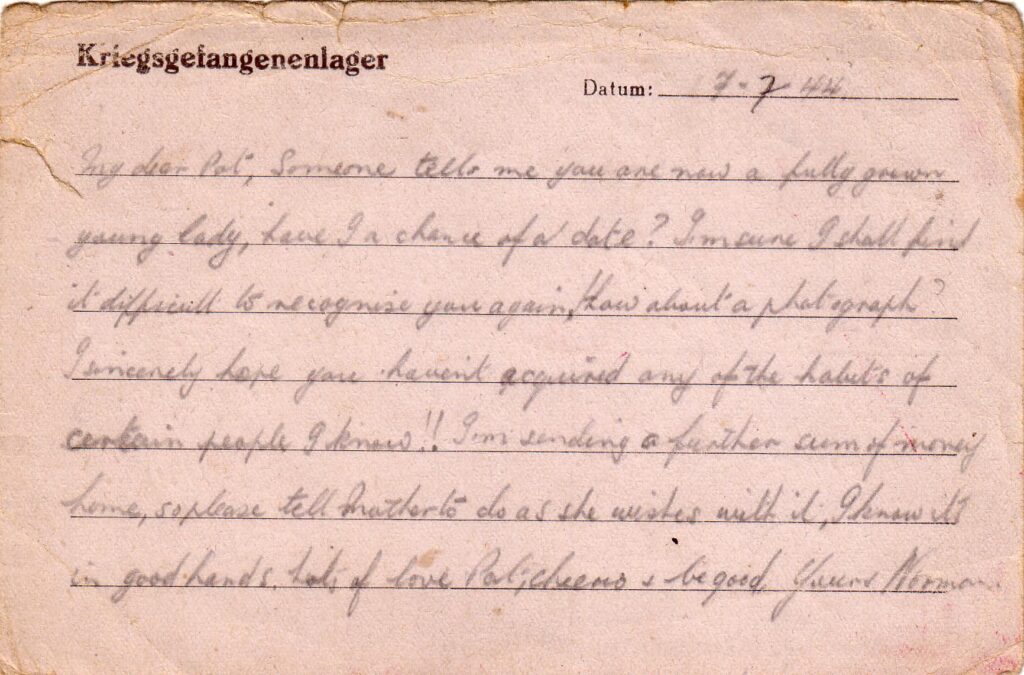 Kriegsgefangenenlager
Datum: 7-7 44.
My dear Pat, Someone tells me you are now a fully grown
young lady, have I a chance of a date? I'm sure I shall find
it difficult to recognise you again, How about a photograph?
I sincerely hope you haven't acquired any of the habits of
certain people I know!! I'm sending a further sum of money
home, so please tell Mother to do as she wishes with it, I know it's
in good hands. Lots of love Pat, cheerio & be good, Yours Norman.